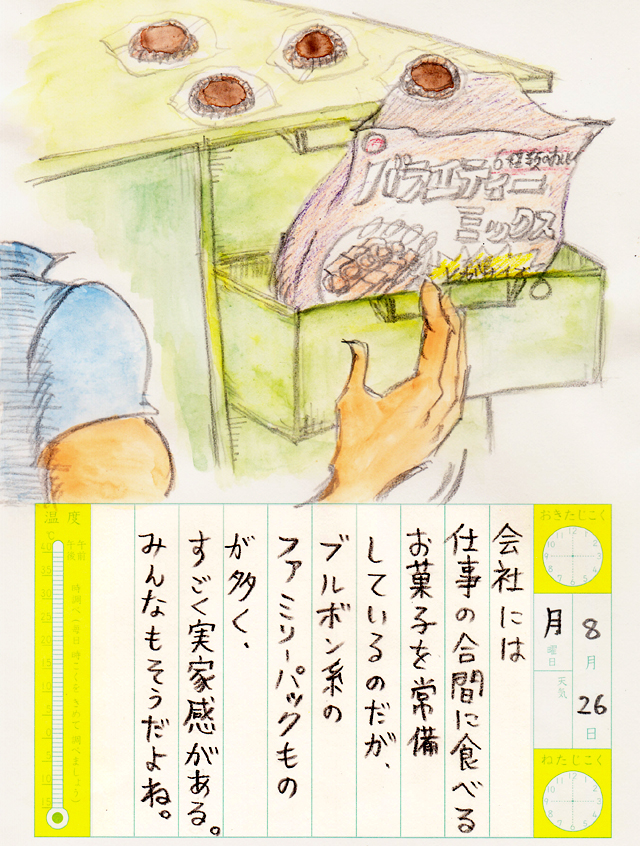 6種類の
バラエティー
ミックス
メガサイズ
おきたじこく
8
月
26
日
月
曜日
天気
ねたじこく
会社には
仕事の合間に食べる
お菓子を常備
しているのだが、
ブルボン系の
ファミリーパックもの
が多く、
すごく実家感がある。
みんなもそうだよね。
温度
℃
午前
午後